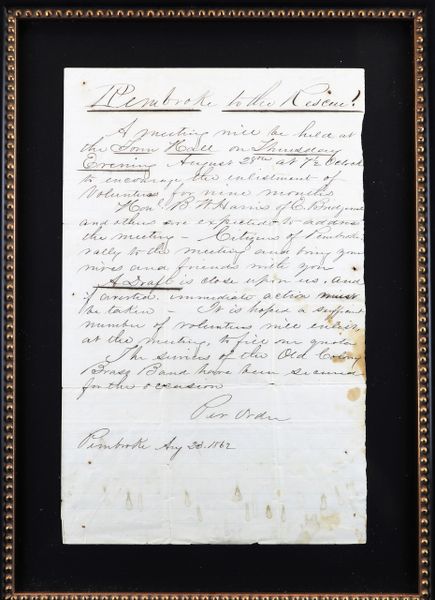 Pembroke to the Rescue!
A meeting will be held at
the Town Hall on Thursday
Evening August 28th at 7½ Oclock
to encourage the enlistment of
Volunteers for nine months
Hon. B W Harris of E. Bridgewater
and others are expected to address
the meeting – Citizens of Pembroke
rally to the meeting and bring your
wives and friends with you
A Draft is close upon us, and
if averted immediate action must
be taken – It is hoped a sufficient
number of volunteers will enlist
at the meeting, to fill our quota
The services of the Old Colony
Brass Band have been secured
for the occasion
Per Order
Pembroke Aug 23. 1862